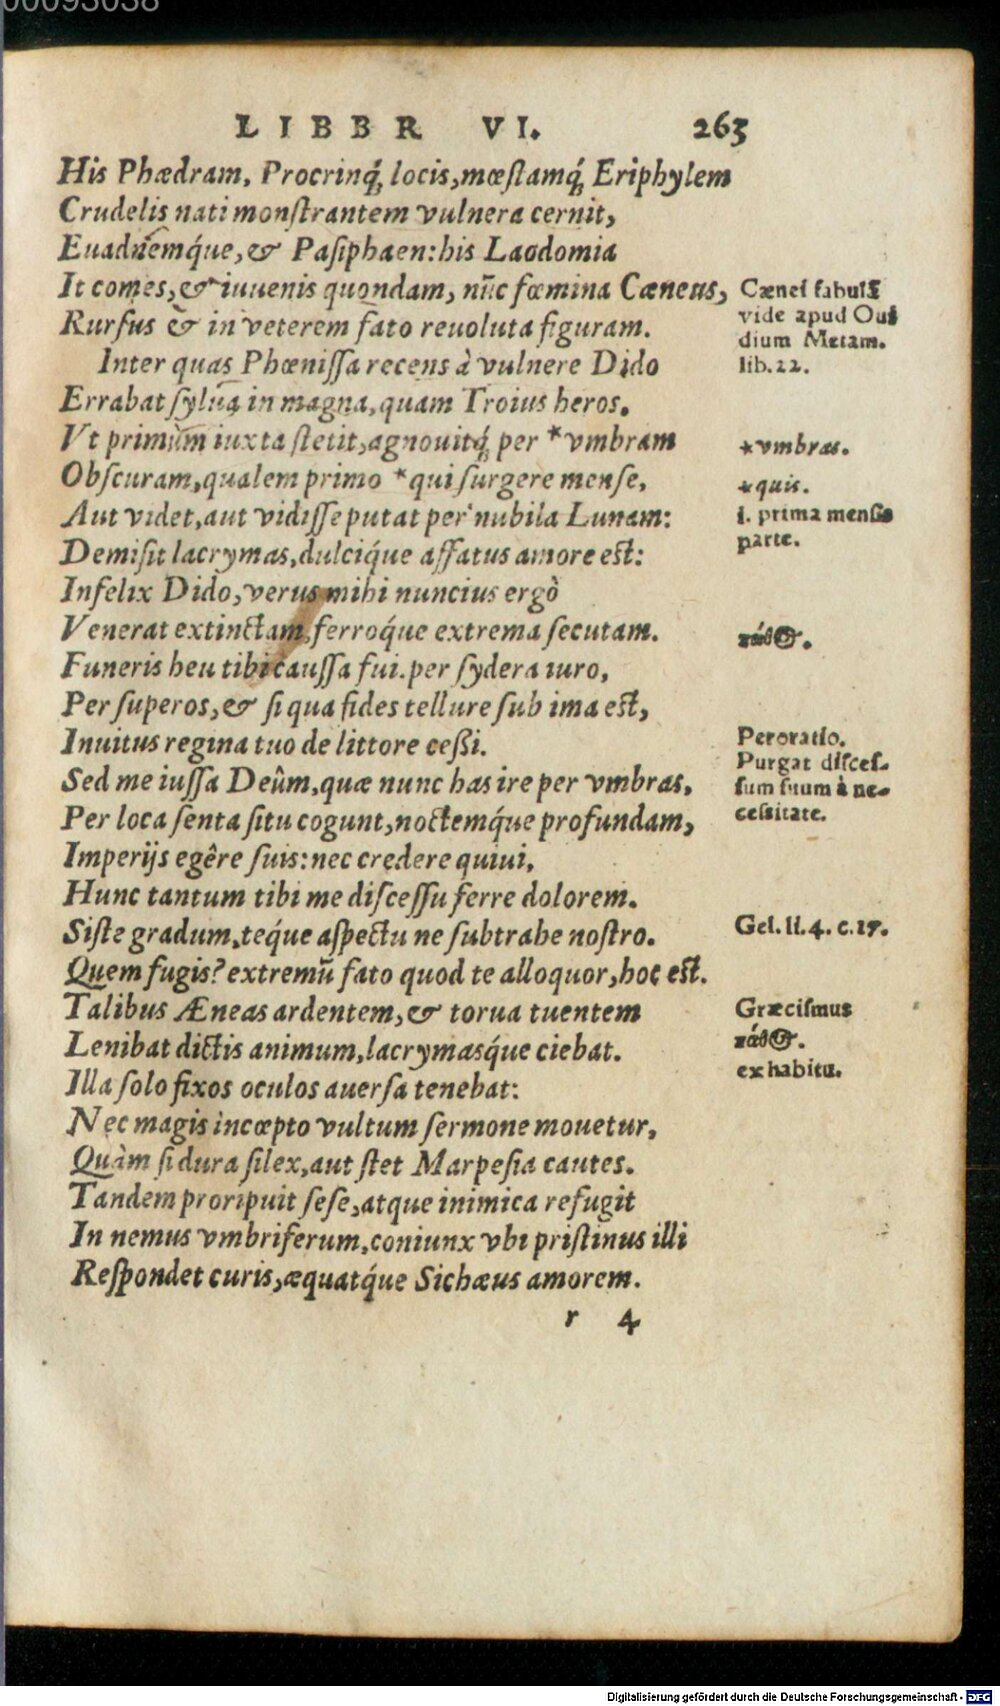 00093038
LIBBR VI. 263
His Phædram, Procrinq́; locis, mœstamq́; Eriphylem
Crudelis nati monstrantem vulnera cernit,
Euadnemq́ue, & Pasiphaen: his Laodomia
It comes, & iuuenis quondam, nūc fœmina Cæneus,
Rursus & in veterem fato reuoluta figuram.
Inter quas Phœnissa recens à vulnere Dido
Errabat sylua in magna, quam Troius heros.
Vt primùm iuxta stetit, agnouitq́; per *vmbram
Obscuram, qualem primo *qui surgere mense,
Aut videt, aut vidisse putat per nubila Lunam:
Demisit lacrymas, dulciq́ue affatus amore est:
Infelix Dido, verus mihi nuncius ergò
Venerat extinctam, ferroq́ue extrema secutam.
Funeris heu tibi caussa fui. per sydera iuro,
Per superos, & si qua fides tellure sub ima est,
Inuitus regina tuo de littore cessi.
Sed me iussa Deûm, quæ nunc has ire per vmbras,
Per loca senta situ cogunt, noctemq́ue profundam,
Imperijs egêre suis: nec credere quiui,
Hunc tantum tibi me discessu ferre dolorem.
Siste gradum, teq́ue aspectu ne subtrahe nostro.
Quem fugis? extremū fato quod te alloquor, hoc est.
Talibus Æneas ardentem, & torua tuentem
Lenibat dictis animum, lacrymasq́ue ciebat.
Illa solo fixos oculos auersa tenebat:
Nec magis incœpto vultum sermone mouetur,
Quàm si dura silex, aut stet Marpesia cautes.
Tandem proripuit sese, atque inimica refugit
In nemus vmbriferum, coniunx vbi pristinus illi
Respondet curis, æquatq́ue Sichæus amorem.
r 4
Cænei fabulā
vide apud Oui
dium Metam.
lib.22.
*vmbras.
*quis.
i. prima mensis
parte.
πάθ⊕.
Peroratio.
Purgat disces-
sum suum à ne-
cessitate.
Gel. li. 4. c. 17.
Græcismus
πάθ⊕.
ex habitu.
Digitalisierung gefördert durch die Deutsche Forschungsgemeinschaft - DFG